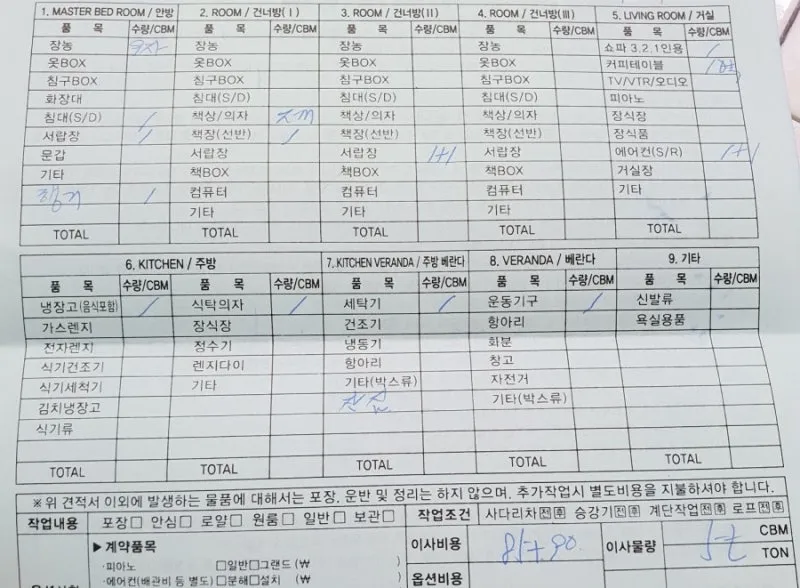 1. MASTER BED ROOM / 안방 2. ROOM / 건너방(Ⅰ) 3. ROOM / 건너방(Ⅱ) 4. ROOM / 건너방(Ⅲ) 5. LIVING ROOM / 거실
품 목 수량/CBM 품 목 수량/CBM 품 목 수량/CBM 품 목 수량/CBM 품 목 수량/CBM
장농 장농 장농 장농 쇼파 3.2.1인용 /
옷BOX 옷BOX 옷BOX 옷BOX 커피테이블
침구BOX 침구BOX 침구BOX 침구BOX TV/VTR/오디오
화장대 침대(S/D) 침대(S/D) 침대(S/D) 피아노
침대(S/D) / 책상/의자 책상/의자 책상/의자 장식장
서랍장 / 책장(선반) / 책장(선반) 책장(선반) 장식품
문갑 서랍장 서랍장 1+1 서랍장 에어컨(S/R) 1+1
기타 책BOX 책BOX 책BOX 거실장
/ 컴퓨터 컴퓨터 컴퓨터 기타
기타 기타 기타
TOTAL TOTAL TOTAL TOTAL TOTAL
6. KITCHEN / 주방 7. KITCHEN VERANDA / 주방 베란다 8. VERANDA / 베란다 9. 기타
품 목 수량/CBM 품 목 수량/CBM 품 목 수량/CBM 품 목 수량/CBM 품 목 수량/CBM
냉장고(음식포함) / 식탁의자 / 세탁기 / 운동기구 / 신발류
가스렌지 장식장 건조기 항아리 욕실용품
전자렌지 정수기 냉동기 화분
식기건조기 렌지다이 항아리 창고
식기세척기 기타 기타(박스류) 자전거
김치냉장고 기타(박스류)
식기류
TOTAL TOTAL TOTAL TOTAL TOTAL
※ 위 견적서 이외에 발생하는 물품에 대해서는 포장, 운반 및 정리는 하지 않으며, 추가작업시 별도비용을 지불하셔야 합니다.
작업내용 포장□ 안심□ 로얄□ 원룸□ 일반□ 보관□ 작업조건 사다리차 승강기 계단작업 로프
▶계약품목 이사비용 이사물량 CBM
·피아노 □일반□그랜드 (₩ ) TON
·에어컨(배관비 등 별도) □분해□설치 (₩ ) 옵션비용